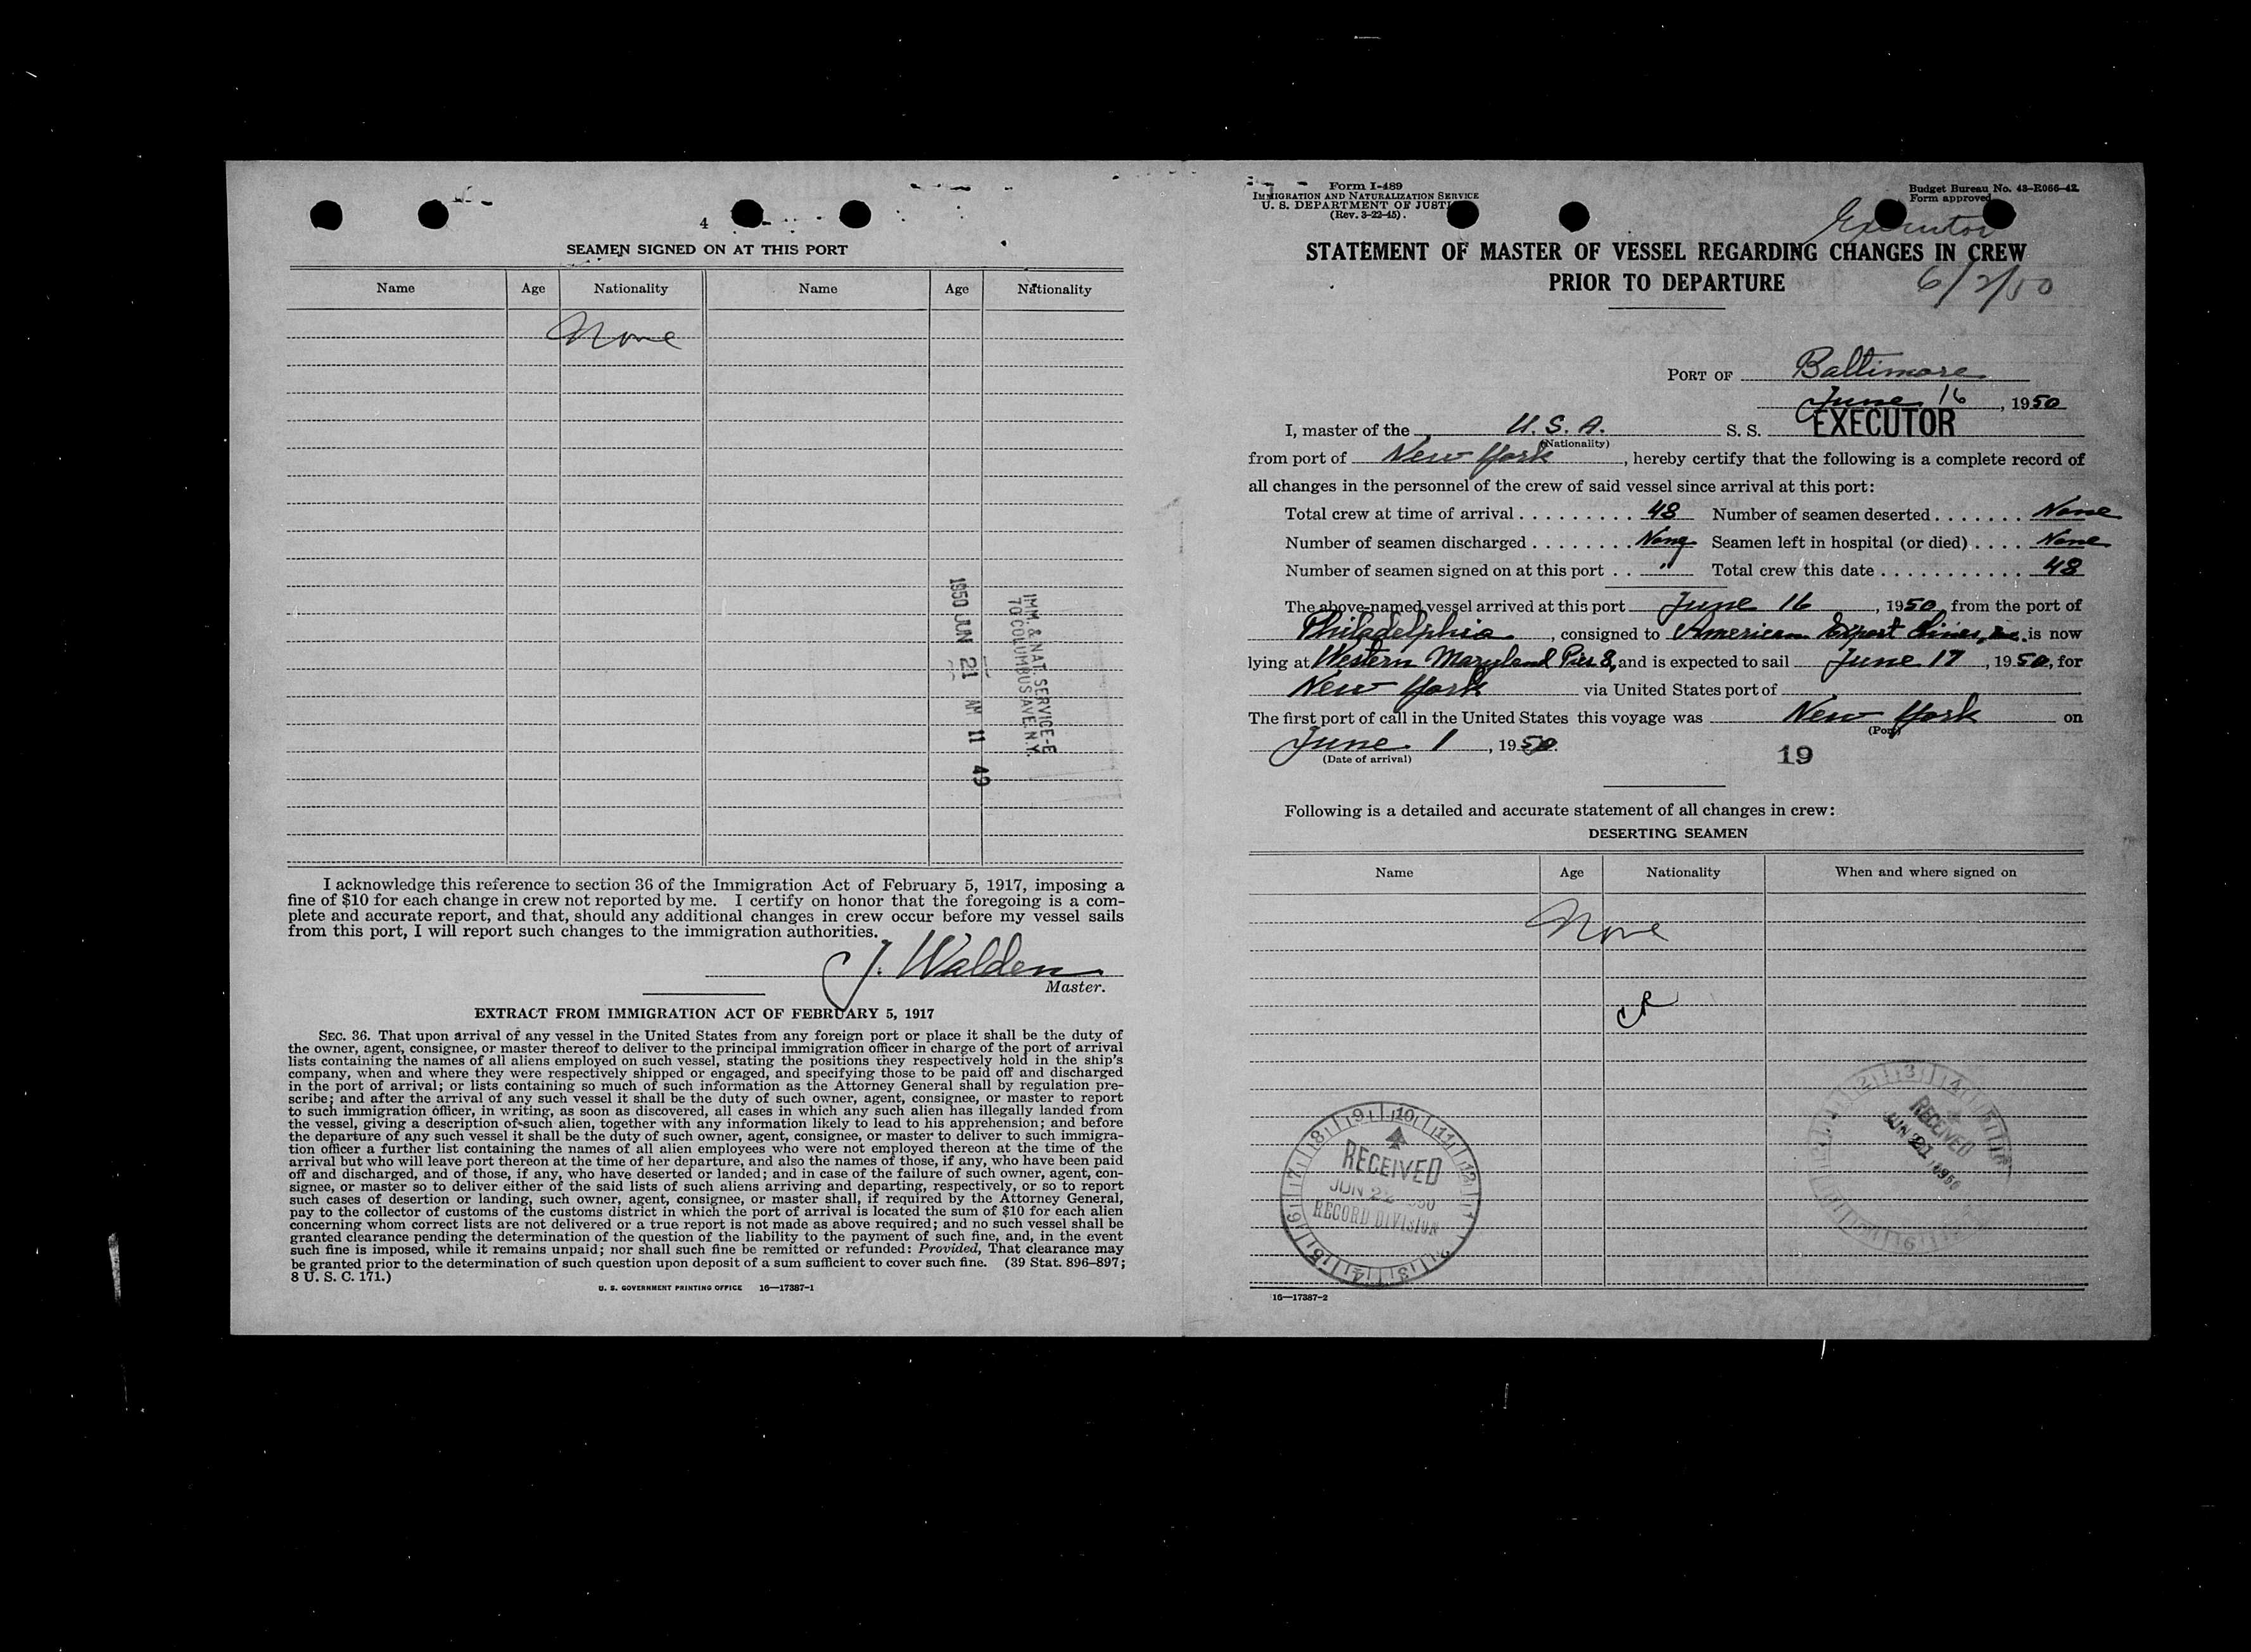 4
SEAMEN SIGNED ON AT THIS PORT
Name Age Nationality Name Age Nationality
None
1950 JUN 21 AM 11 49
IMM. & NAT. SERVICE-E
70 COLUMBUS AVE. N.Y.
I acknowledge this reference to section 36 of the Immigration Act of February 5, 1917, imposing a
fine of $10 for each change in crew not reported by me. I certify on honor that the foregoing is a com-
plete and accurate report, and that, should any additional changes in crew occur before my vessel sails
from this port, I will report such changes to the immigration authorities.
J. Walden
Master.
EXTRACT FROM IMMIGRATION ACT OF FEBRUARY 5, 1917
SEC. 36. That upon arrival of any vessel in the United States from any foreign port or place it shall be the duty of
the owner, agent, consignee, or master thereof to deliver to the principal immigration officer in charge of the port of arrival
lists containing the names of all aliens employed on such vessel, stating the positions they respectively hold in the ship's
company, when and where they were respectively shipped or engaged, and specifying those to be paid off and discharged
in the port of arrival; or lists containing so much of such information as the Attorney General shall by regulation pre-
scribe; and after the arrival of any such vessel it shall be the duty of such owner, agent, consignee, or master to report
to such immigration officer, in writing, as soon as discovered, all cases in which any such alien has illegally landed from
the vessel, giving a description of such alien, together with any information likely to lead to his apprehension; and before
the departure of any such vessel it shall be the duty of such owner, agent, consignee, or master to deliver to such immigra-
tion officer a further list containing the names of all alien employees who were not employed thereon at the time of the
arrival but who will leave port thereon at the time of her departure, and also the names of those, if any, who have been paid
off and discharged, and of those, if any, who have deserted or landed; and in case of the failure of such owner, agent, con-
signee, or master so to deliver either of the said lists of such aliens arriving and departing, respectively, or so to report
such cases of desertion or landing, such owner, agent, consignee, or master shall, if required by the Attorney General,
pay to the collector of customs of the customs district in which the port of arrival is located the sum of $10 for each alien
concerning whom correct lists are not delivered or a true report is not made as above required; and no such vessel shall be
granted clearance pending the determination of the question of the liability to the payment of such fine, and, in the event
such fine is imposed, while it remains unpaid; nor shall such fine be remitted or refunded: Provided, That clearance may
be granted prior to the determination of such question upon deposit of a sum sufficient to cover such fine. (39 Stat. 896-897;
8 U. S. C. 171.)
U. S. GOVERNMENT PRINTING OFFICE 16—17387-1
Form I-489
IMMIGRATION AND NATURALIZATION SERVICE
U. S. DEPARTMENT OF JUSTI
(Rev. 3-22-45).
Budget Bureau No. 43-R066-42.
Form approved.
Executor
STATEMENT OF MASTER OF VESSEL REGARDING CHANGES IN CREW
PRIOR TO DEPARTURE
6/2/50
PORT OF Baltimore
June 16, 1950
I, master of the U. S. A. S. S. EXECUTOR
(Nationality)
from port of New York, hereby certify that the following is a complete record of
all changes in the personnel of the crew of said vessel since arrival at this port:
Total crew at time of arrival 48 Number of seamen deserted None
Number of seamen discharged None Seamen left in hospital (or died) None
Number of seamen signed on at this port " Total crew this date 48
The above-named vessel arrived at this port June 16, 1950, from the port of
Philadelphia, consigned to American Export Lines, Inc. is now
lying at Western Maryland Pier 8, and is expected to sail June 17, 1950, for
New York via United States port of
The first port of call in the United States this voyage was New York on
(Port)
June 1, 1950.
(Date of arrival)
19
Following is a detailed and accurate statement of all changes in crew:
DESERTING SEAMEN
Name Age Nationality When and where signed on
None
RECEIVED
JUN 22
RECORD DIVISION
RECEIVED
JUN 21 1950
16—17387-2